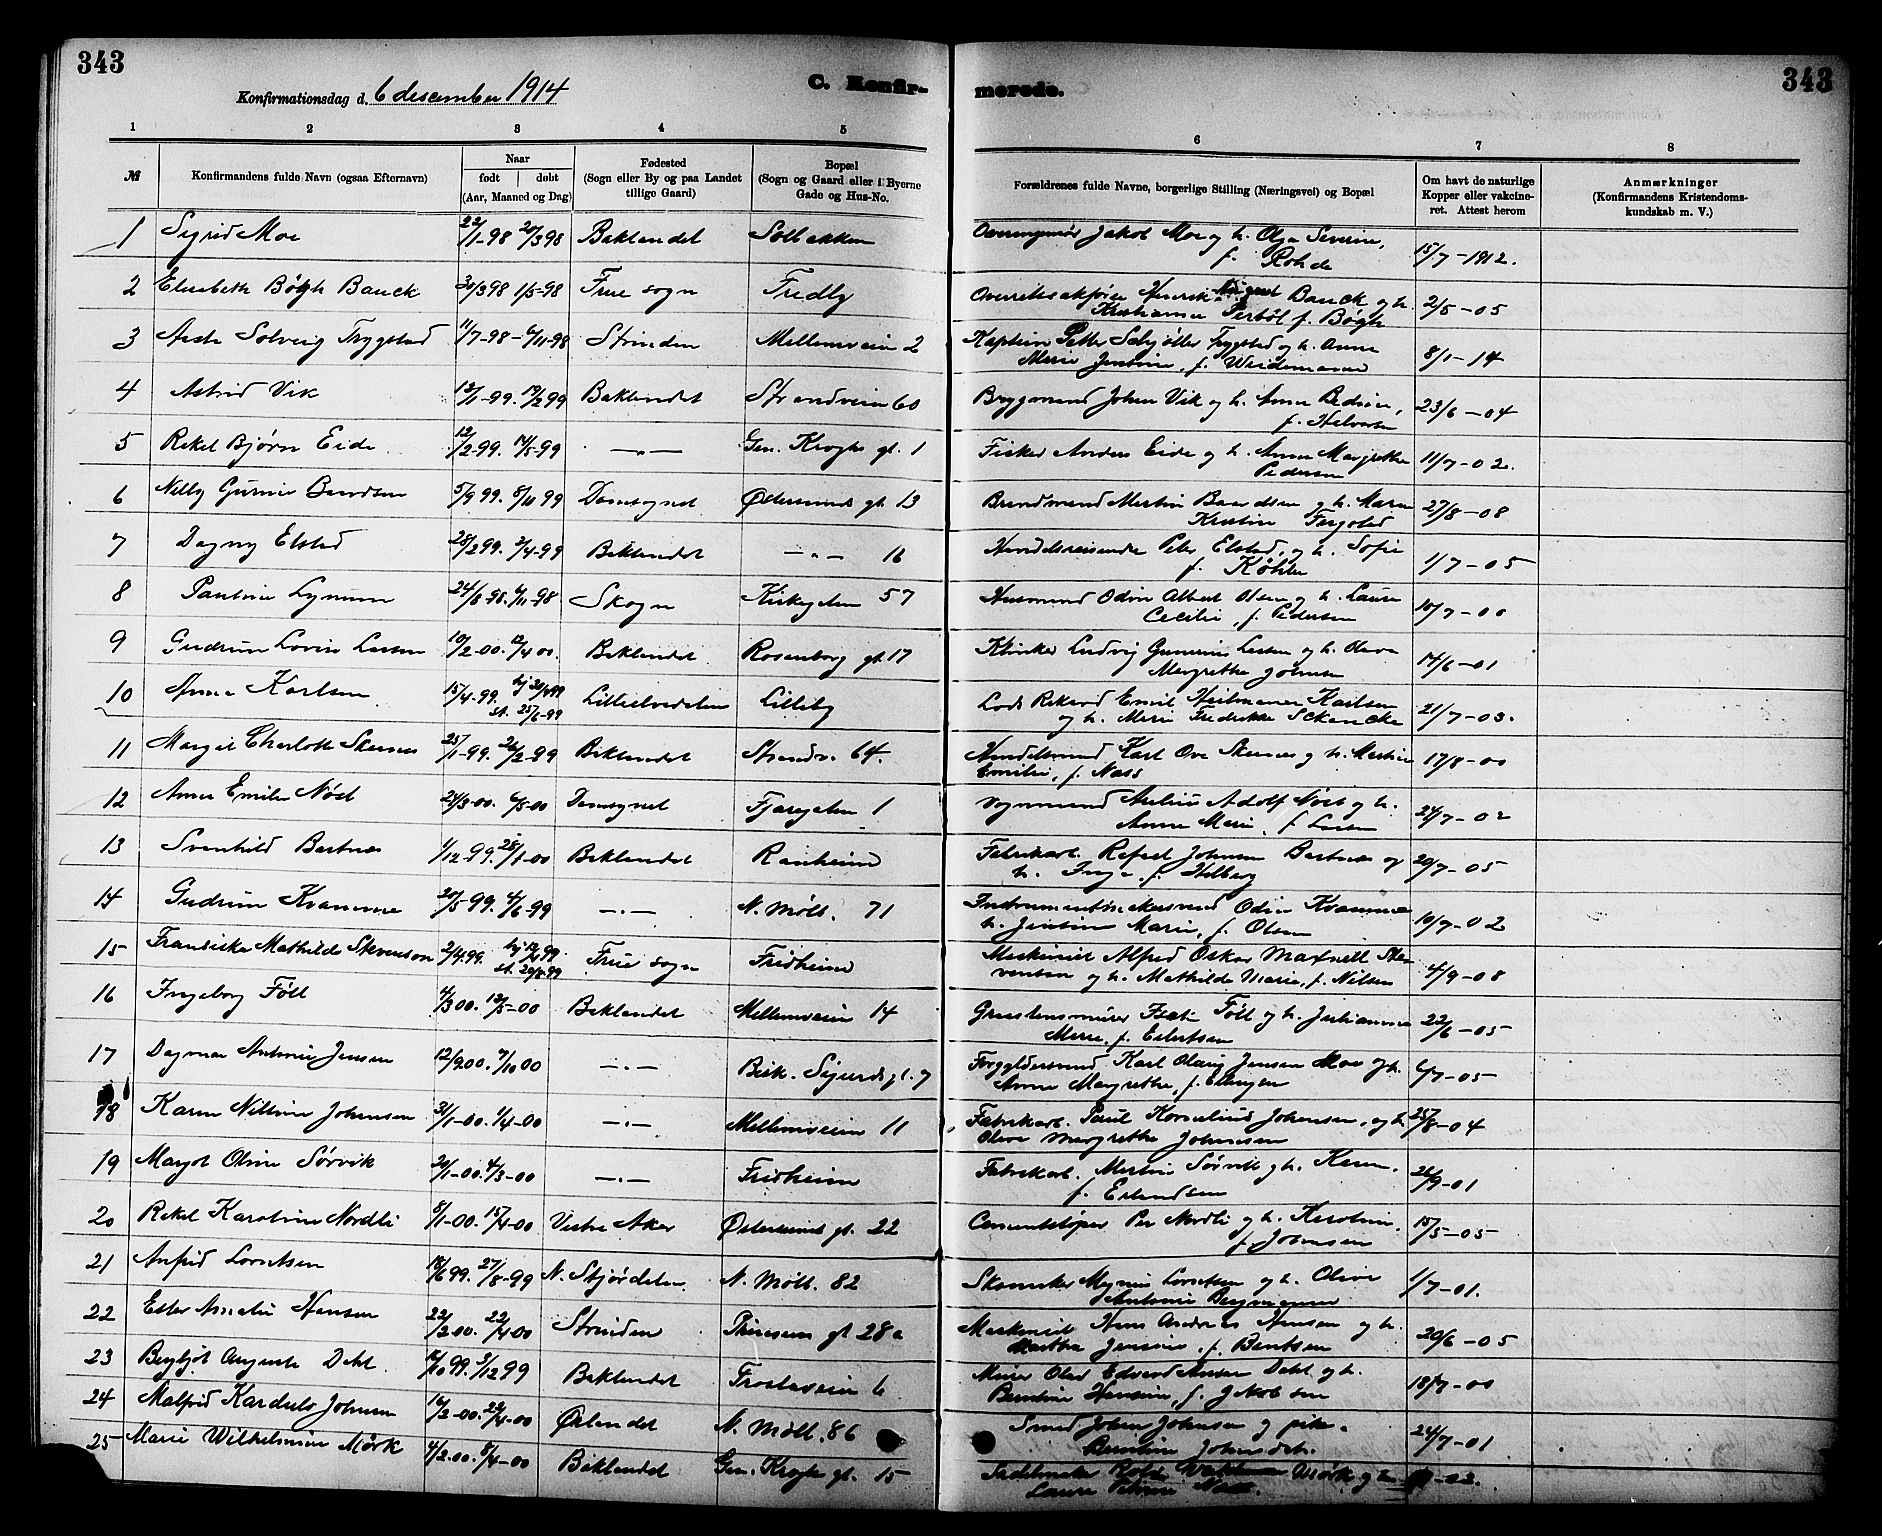 343
Konfirmationsdag d. 6 desember 1914
C. Konfir-
merede.
343
1 2 3 4 5 6 7 8
№
Konfirmandens fulde Navn (ogsaa Efternavn)
Naar
født døbt
(Aar, Maaned og Dag)
Fødested
(Sogn eller By og paa Landet
tillige Gaard)
Bopæl
(Sogn og Gaard eller i Byerne
Gade og Hus-No.
Forældrenes fulde Navne, borgerlige Stilling (Næringsvei) og Bopæl
Om havt de naturlige
Kopper eller vakcine-
ret. Attest herom
Anmærkninger
(Konfirmandens Kristendoms-
kundskab m. V.)
1 Sigrid Moe 22/1-98 20/3 98 Baklandet Solbakken Jakob Moe og h. Olga Severine, 15/7-1912.
f. Rohde
2 Elisabeth Bøgh Bauck 30/3 98 1/5-98 Frue sogn Fredly Henrik August Bauck og h. 2/5-05
f. Bøgh
3 Aasta Solveig Trygstad 11/7-98 - 6/11-98 Strinden Mellemveien 2 Kaptein Petter Trygstad og h. Anna 8/1-14
Marie f. Weidemann
4 Astrid Vik 12/1-99. 19/2 99 Baklandet Strandveien 60 Brygmand Johan Vik og h. Anna 23/6-04
f. Halvorsen
5 Rakel Bjørn Eide 12/2-99. 14/5-99 —"— Gen. Kroghs gt. 1 Fisker Anders Eide og h. Anna Margrethe 11/7-02.
Pedersen
6 Nelly Gunvor 5/9 99. 5/11 99 Domsognet Østersunds gt. 13 Brandmand Martin og h. Maren 27/8-08
Kristine
7 Dagny Elstad 28/2 99. 3/4-99 Baklandet —"— 16 Handelsreisende Peter Elstad, og h. Sofie 1/7-05
f. Køhler
8 Pauline Lynum 24/8-98. 6/11-98 Skogn Kirkegaten 57 Husmand Odin Albert Olsen og h. Laura 10/7-00
Cecilie, f. Pedersen
9 Gudrun Lovise Larsen 10/2-00. 17/4 00. Baklandet Rosenborg gt. 17 Ludvig Gunerius Larsen og h. Olava 14/6-01
Margrethe Johnsen
10 Anna Karlsen 15/4-99. hj 30/4 99 Lilleby Lods Rikard Emil Karlsen 21/7-03.
st. 25/6-99 og h. Marie Fredrikke Schancke
11 Margit Charlotte Skarnes 25/1-99. 26/2-99 Baklandet Strandv. 64. Handelsmand Karl Ove Skarnes og h. Martine 17/8-00
Emilie, f. Nass
12 Anna Emilie Nøst 24/3-00. 6/5-00 Domsognet Fjæregaten 1 Adolf Nøst og h. 24/7-02
Anna Marie, f. Larsen
13 Svanhild Bartnes 1/12-99. 28/1-00 Baklandet Ranheim Fabrikarb. Rafael Johnsen Bartnes og 20/7-05
h. Inga, f. Hilberg
14 Gudrun Kvamme 20/5 99. 4/6-99 —"— N. Møll. 71 Instrumentmakersvend Odin Kvamme 10/7-02
h. Jensine Marie, f. Olsen
15 Fransiska Mathilde Stevenson 2/4 99. hj 12/4 99 Frue sogn Fridheim Maskinist Alfred Oskar Maxvell Ste- 4/9-08
st. 20/8-99 venson og h. Mathilde Marie, f. Nilsen
16 Ingeborg Föll 4/3 00. 13/5-00 Baklandet Mellemveien 14 Graastensmurer Föll og h. Julianna 22/6-05
Marie, f. Eilertsen
17 Dagmar Antonie Jensen 12/9 00. 7/10 00 —"— Bisk. Sigurds gt. 7 Forgyldersvend Karl Olaug Jensen Moe og h. 6/7-05
Anna Margrethe, f. Ellingsen
18 Karen Nilsine Johansen 31/1-00. 1/4-00 —"— Mellemveien 11 Fabrikarb. Paul Kornelius Johansen, og h. 25/8-04
Oliva Margrethe Johnsen
19 Margot Oline Sørvik 20/1-00. 4/3-00 —"— Fridheim Fabrikarb. Martin Sørvik og h. Karen. 26/9-01
f. Erlandsen
20 Rakel Karoline Nordli 8/1-00. 15/4-00 Vestre Aker Østersunds gt. 22 Cementstøper Per Nordli og h. Karoline. 15/5-05
f. Johnsen
21 Anfrid Lorntsen 18/6 99. 27/8-99 N. Stjørdalen N. Møll. 82 Skomaker Magnus Lorntsen og h. Olive 1/7-01.
Antonie Bergmann
22 Ester Amalie Hansen 22/2 00. 22/4 00 Strinden gt 28a Maskinist Hans Andreas Hansen og h. 20/6-05
Martha f. Berntsen
23 Bergljot Augusta Dahl 12/10 99. 3/12 99 Baklandet Frostaveien 6 Murer Olaf Edvard Dahl og h. 18/7-00
f. Jakobsen
24 Malfrid Johnsen 16/2-00. 22/4-00 Ørlandet N. Møll. 86 Smed Johan Johnsen og pike 24/7-01
Berntine Johnsdatr.
25 Marie Wilhelmine Mørk 4/2 00. 8/4-00 Baklandet Gen. Kroghs gt. 15 Mørk og h.
Laura Petrine Nass.